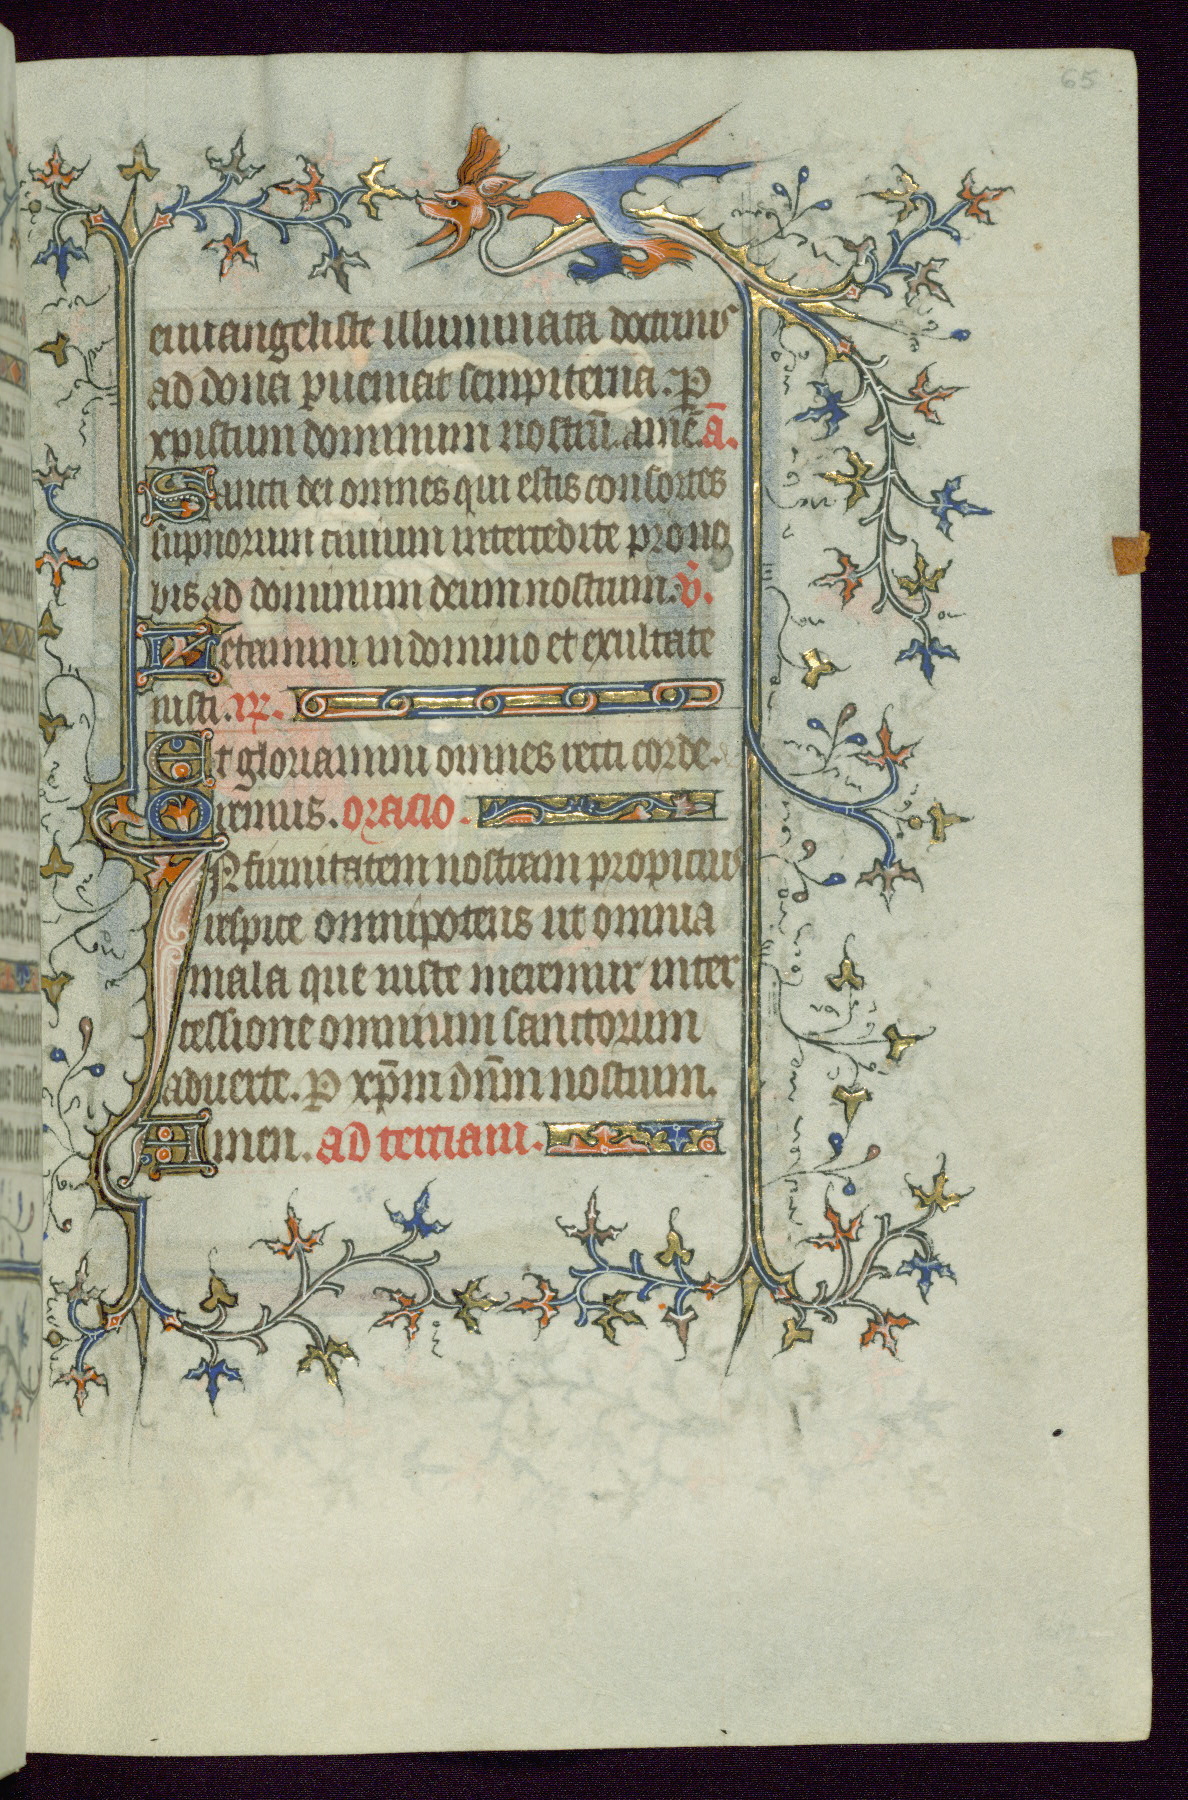 65
euuangeliste illuminata doctrinis
ad dona pueniat sempiterna. P
xpistum dominum nostrū. amē. ā.
Sancti dei omnes qui estis consortes
supnorum ciuium intercedite pro no
bis ad dominum deum nostrum. v̄.
Letamini in domino et exultate
iusti. R.
Et gloriamini omnes recti corde.
Oremus. oracio.
INfirmitatem nostram propicius
respice omnipotens ut omnia
mala que iuste meremur inter
cessione omnium sanctorum
aduerte. P xp̄m dn̄m nostrum.
Amen. ad terciam.